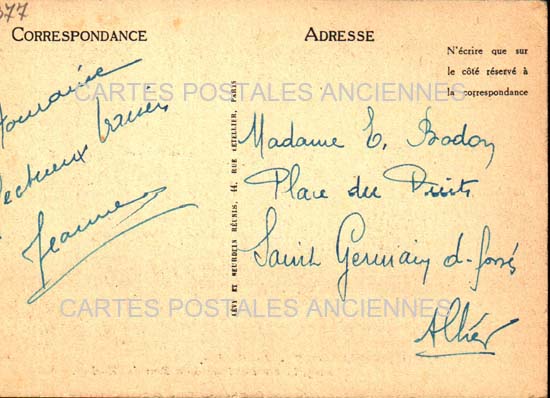 377
CORRESPONDANCE
ADRESSE
N'écrire que sur
le côté réservé à
la correspondance
CARTES POSTALES ANCIENNES
Touraine
ectueux baisers
Jeanne
LÉVY ET NEURDEIN RÉUNIS, 44, RUE LETELLIER, PARIS
Madame E. Bodon
Place du Puits
Saint Germain d-fossés
Allier
CARTES POSTALES ANCIENNES